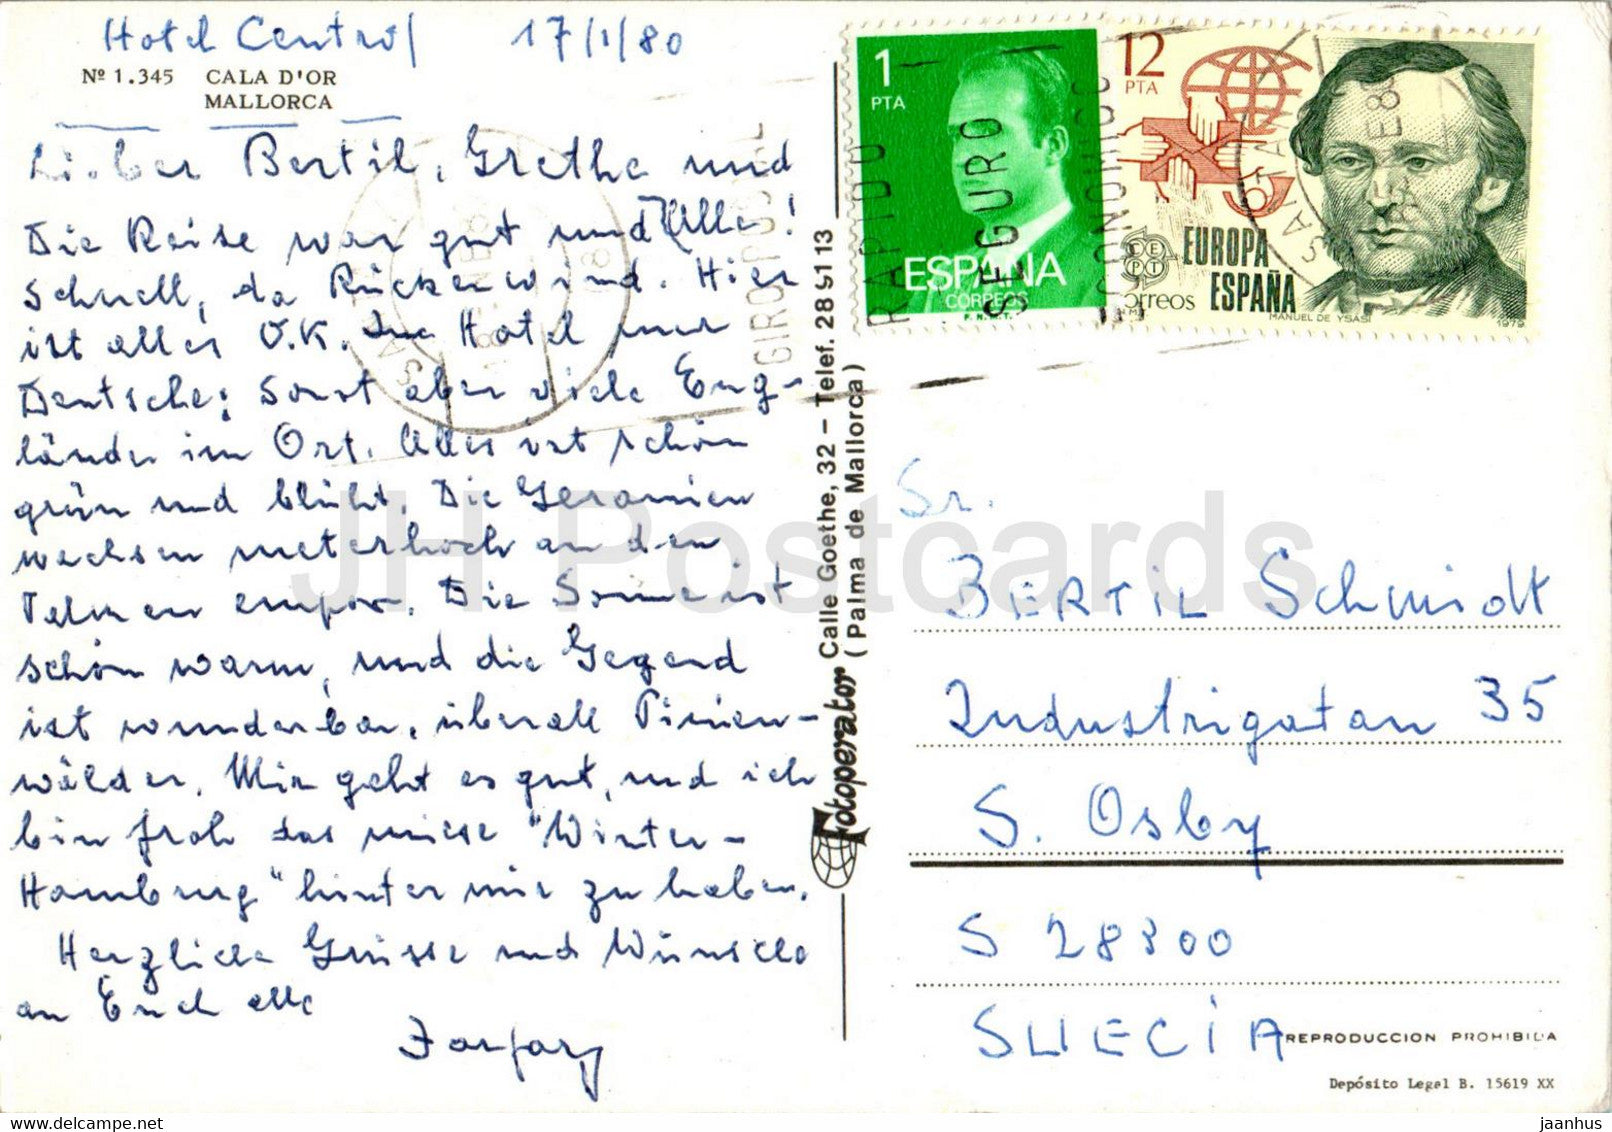 Hotel Central 17/1/80
Nº 1.345 CALA D'OR
MALLORCA
Lieber Bertil, Grethe und
Alle!
Die Reise war gut und
schnell, da Rückenwind. Hier
ist alles O.K. Im Hotel nur
Deutsche; sonst aber viele Eng-
länder im Ort. Alles ist schön
grün und blüht. Die Geranien
wachsen meterhoch an den
Palmen empor. Die Sonne ist
schön warm, und die Gegend
ist wunderbar, überall Pinien-
wälder. Mir geht es gut, und ich
bin froh das miese "Winter-
Hamburg" hinter mir zu haben.
Herzliche Grüsse und Wünsche
an Euch alle
Fotoperator
Calle Goethe, 32 - Telef. 28 91 13
(Palma de Mallorca)
1
PTA
ESPAÑA
CORREOS
F.N.M.T.
12
PTA
EUROPA
CEPT
correos ESPAÑA
MANUEL DE YSASI
1979
RAPIDO
SEGURO
ECONOMICO
GIRO POSTAL
Sr.
BERTIL Schmidt
Industrigatan 35
S. Osby
S 28300
SUECIA
REPRODUCCION PROHIBIDA
Depósito Legal B. 15619 XX
JH Postcards
jaanhus